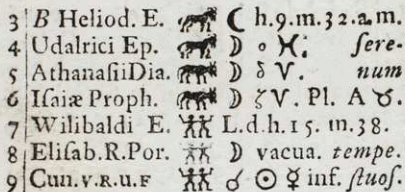 3 B Heliod. E. ♉ ☾ h.9.m.32.a.m.
4 Udalrici Ep. ♉ ☽ ☍ ♓. ſere-
5 AthanaſiiDia. ♉ ☽ δ ♈. num
6 Iſaiæ Proph. ♉ ☽ ζ ♈. Pl. A ♉.
7 Wilibaldi E. ♊ L.d.h.15.m.38.
8 Eliſab.R.Por. ♊ ☽ vacua. tempe.
9 Cun.V.R.U.F ♊ ☌ ☉ ☿ inf. ſtuoſ.